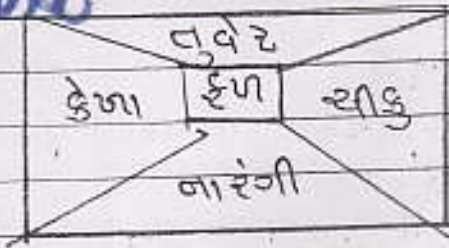 તુવેર
કેળા ફળ ચીકુ
નારંગી